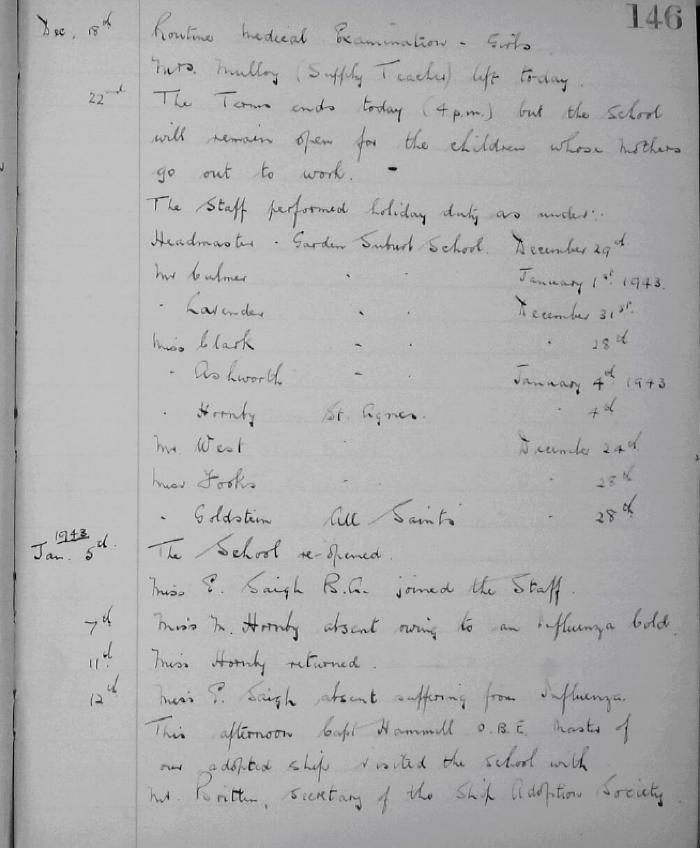 146
Dec. 18th Routine Medical Examination - Girls
Mrs. Mulloy (Supply Teacher) left today.
22nd The Term ends today (4 p.m.) but the School
will remain open for the children whose mothers
go out to work. -
The Staff performed holiday duty as under:-
Headmaster - Garden Suburb School. December 29th
Mr Culmer " " January 1st 1943.
" Lavender " " December 31st.
Miss Clark " " " 28th
" Ashworth " " January 4th 1943
" Hornby St. Agnes. " 4th
Mr. West " December 24th
Miss Fooks " " " 28th
" Goldstein All Saints " 28th
1943
Jan. 5th. The School re-opened.
Miss E. Saigh B.A. joined the Staff.
7th Miss M. Hornby absent owing to an influenza Cold.
11th Miss Hornby returned.
12th Miss E. Saigh absent suffering from Influenza.
This afternoon Capt Hammill O.B.E. Master of
our adopted ship visited the school with
Mr. Britten, Secretary of the Ship Adoption Society